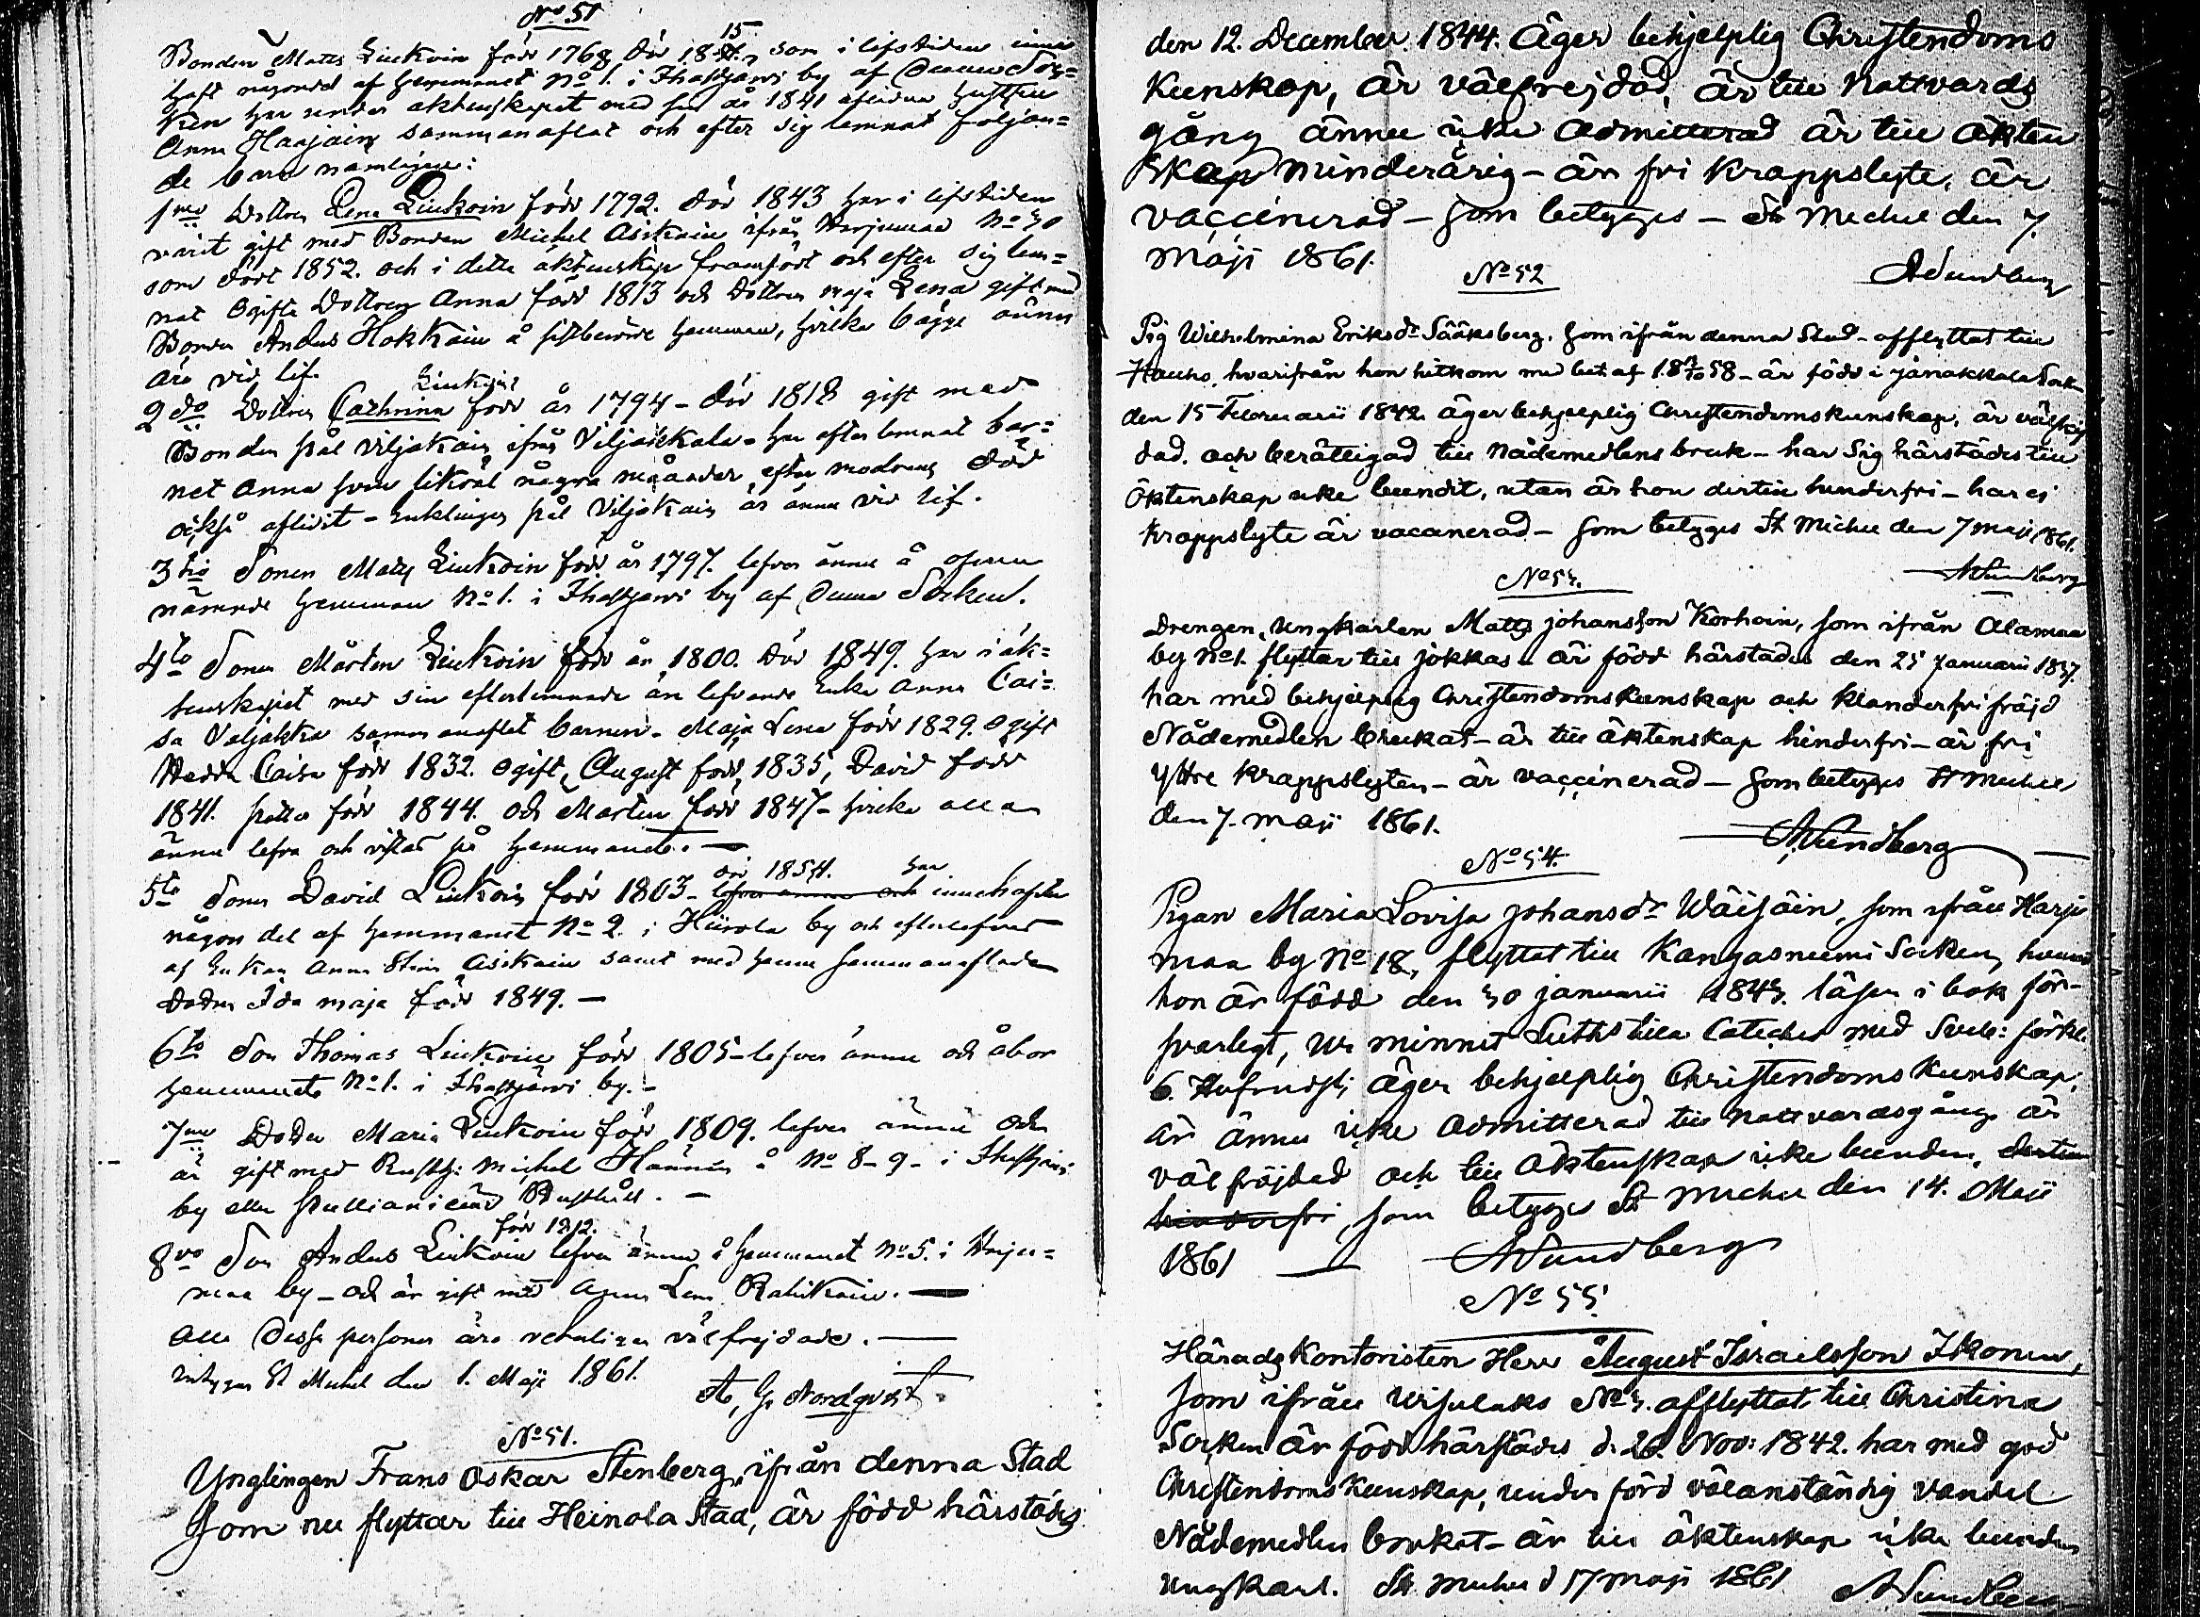 No 51
Bonden Mats Liukoin född 1768, död 1815, som i lifstiden inne
haft någondel af hemmanet No 1. i Ihastjärvi by af denna Soc=
ken har under äktenskapet med sin år 1841 aflidna hustru
Anna Haajain sammanaflat och efter sig lemnat följan=
de barn nemligen:
1mo Dottren Lena Liukoin född 1792. död 1843 har i lifstiden
varit gift med Bonden Michel Asikain ifrån Harjumaa No 30
som dödt 1852. och i detta äktenskap framfödt och efter sig lem=
nat Ogifta Dottren Anna född 1813 och Dottren Maja Lena gift med
Bonden Anders Hokkain å sistberörde hemman, hvilka bägge ännu
äro vid lif.
2do Dottren Cathrina Liukoin född år 1794 - död 1818 gift med
Bonden Pål Viljakain ifrån Viljakkala - har efterlemnat bar=
net Anna som likväl några månader efter modrens död
också aflidit - Enklingen Pål Viljakain är ännu vid lif.
3tio Sonen Mats Liukoin född år 1797. lefver ännu å ofvan
nämnde hemman No 1. i Ihastjärvi by af denna Socken.
4to Sonen Mårten Liukoin född år 1800. död 1849. har i äk=
tenskapet med sin efterlemnade än lefvande Enka Anna Cai=
sa Valjakka sammanaflat barnen - Maja Lena född 1829. Ogift
Hedda Caisa född 1832. ogift, August född 1835, David född
1841. Petter född 1844. och Mårten född 1847 - hvilka alla
ännu lefva och vistas på hemmanet. -
5to Sonen David Liukoin född 1803 - död 1854. har lefver ännu och innehafver
någon del af hemmanet No 2. i Hiirola by och efterlefves
af Enkan Anna Stina Asikain samt med henne sammanaflade
Dottren Ida Maja född 1849. -
6to Son Thomas Liukoin född 1805 - lefver ännu och åbor
hemmanet No 1. i Ihastjärvi by. -
7mo Dotter Maria Liukoin född 1809. lefver ännu och
är gift med Rusth: Michel Hännin å No 8-9 - i Ihastjärvi
by eller Pullialnieni Rusthåll. -
8vo Son Anders Liukoin född 1812. lefver ännu å hemmanet No 5. i Harju=
maa by - och är gift med Anna Lena Rahikain. -
Alla dessa personer äro veterligen välfrejdade. -
intygar St Michel den 1. Maji 1861.
A, G. Nordqvist
No 51.
Ynglingen Frans Oskar Stenberg, ifrån denna Stad
Som nu flyttar till Heinola Stad, är född härstädes
den 12. December 1844. Äger behjelplig Christendoms
Kunskap, är välfrejdad, är till Nattvards
gång ännu icke admitterad är till äkten
skap minderårig - är fri kroppslyte, är
vaccinerad - som betygges - St Michel den 7.
Maji 1861.
ASundberg
No 52
Pig Wilhelmina Eriksdr Sääksberg. som ifrån denna Stad - afflyttat till
Hauho, hvarifrån hon hitkom med bet: af 18 58 - är född i Janakkala Sock
den 15 Februarii 1842. äger behjelplig Christendomskunskap, är välfrej
dad. och berättigad till Nådemedlens bruk - har Sig härstädes till
äktenskap icke bundit, utan är hon dertill hinderfri - har ej
kroppslyte är vaccinerad - som betyges St Michel den 7 Maji 1861.
ASundberg
No 53.
Drengen, Ungkarlen Matts Johansson Korhoin, som ifrån Alamaa
by No 1. flyttar till Jokkas - är född härstädes den 25 Januarii 1837.
har med behjelplig Christendomskunskap och klanderfri fräjd
Nådemedlen brukat - är till äktenskap hinderfri - är fri
yttre kroppslyten - är vaccinerad - som betyges St Michel
den 7. Maji 1861.
ASundberg
No 54.
Pigan Maria Lovisa Johansdr Wäisäin, som ifrån Harju
maa by No 18, flyttat till Kangasniemi Socken, hvarest
hon är född den 30 Januarii 1843. läser i bok för-
svarligt, ur minnet Luth: lilla Cateches med Sveb: förkl:
6. Hufvudst; äger behjelplig Christendoms Kunskap,
är ännu icke admitterad till Nattvardsgång är
välfräjdad och till äktenskap icke bunden, dertill
hinderfri, som betyges St Michel den 14. Maji
1861 - ASundberg
No 55.
HäradsKontoristen Herr August Israelsson Ikonen,
som ifrån Visulaks No 3. afflyttat till Christina
Socken är född härstädes d. 26. Nov: 1842. har med god
Christendoms Kunskap, under förd välanständig vandel
Nådemedlen brukat - är till äktenskap icke bunden
Ungkarl. St Michel d 17 Maji 1861 ASundberg